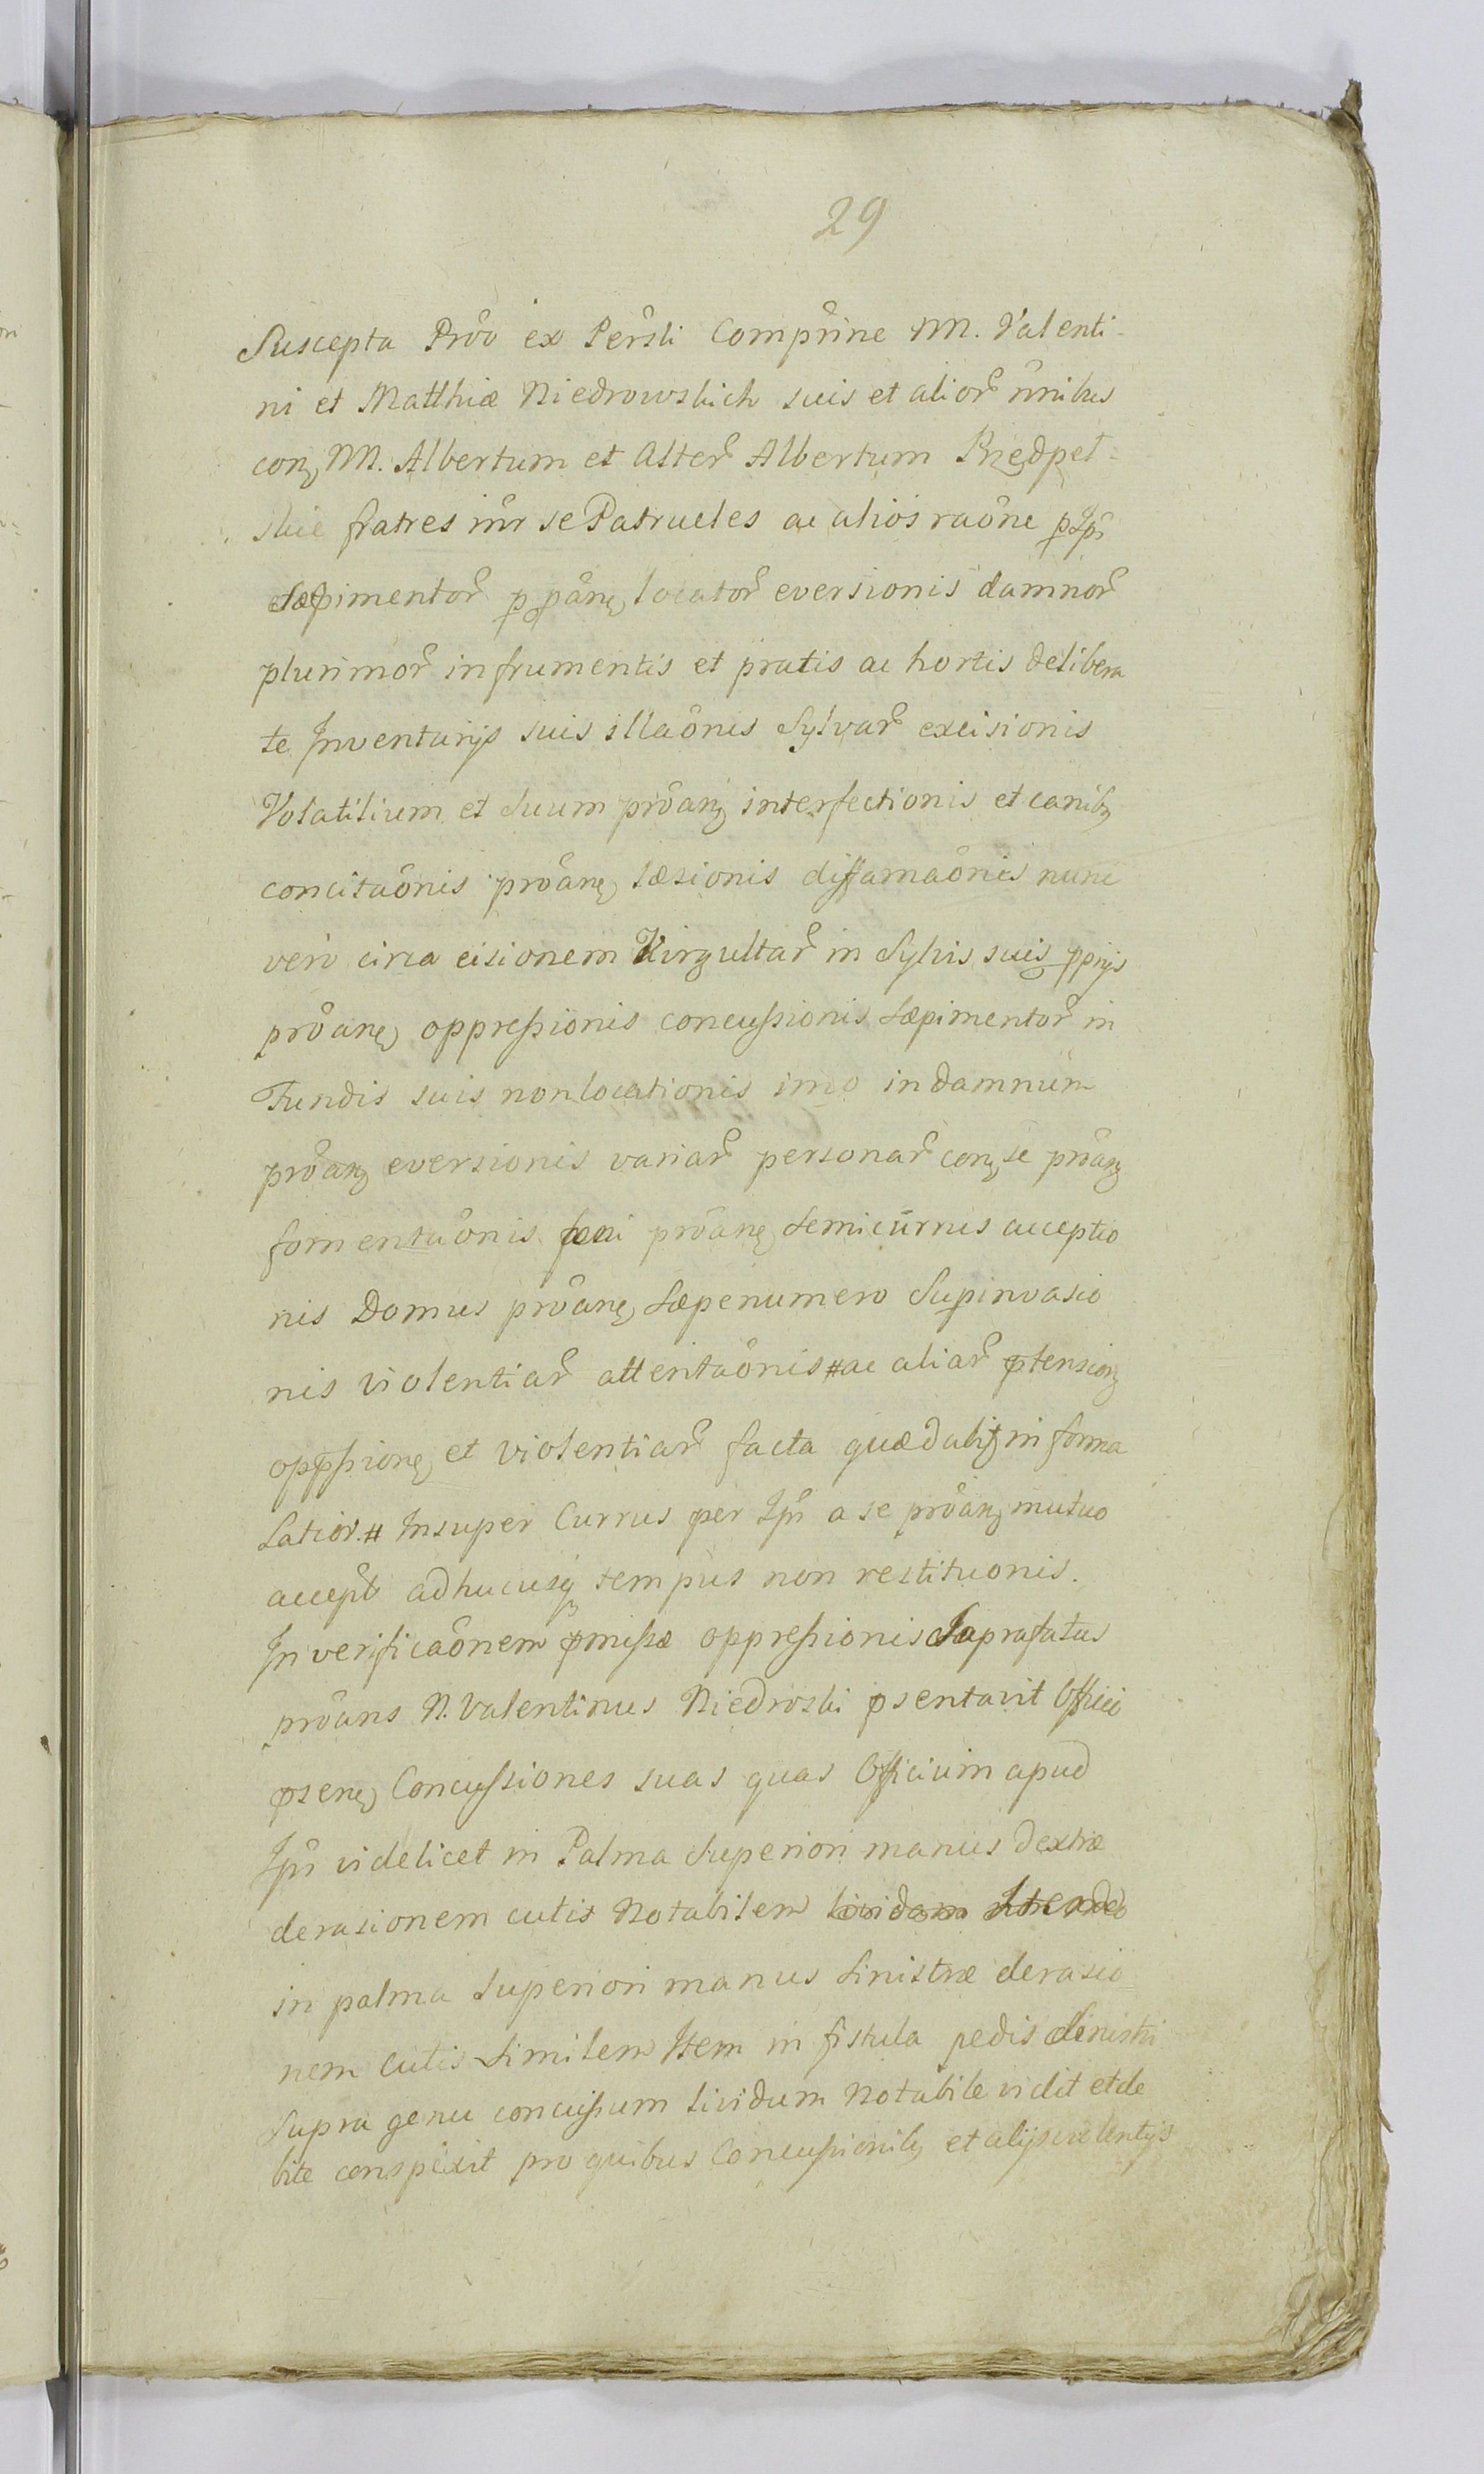 29
Suscepta Prõo ex Persli Comprine MM. Valenti-
ni et Matthiæ Niedrowskich suis et alior nnibus
conz MM. Albertum et Alter Albertum
skie fratres inr se Patrueles ac alios raõne p Ips
Sæpimentor p pane locator eversionis damnor
plurimor in frumentis et pratis ac hortis delibera
te Inventarijs suis illaõnis Sylvar excisionis
Volatilium et Suum prõanz interfectionis et canibz
concitaõnis prõane læsionis diffamaõnis nunc
vero circa cisionem Virgultar in Sylvis suis pprijs
prõane oppressionis concussionis Sæpimentor in
Fundis suis non locationis imo in damnum
prõanz eversionis variar personar conz se prõanz
fomentaõnis fœni prõane Semicurrus acceptio
nis Domus prõane Sæpenumero Supinvasio
nis violentiar attentaõnis # ac aliar ptensionz
oppssione et violentiar facta quæ dabitz in forma
Latior. # Insuper Currus per Ips a se prõanz mutuo
accept adhucusq tempus non restituonis.
In verificaõnem pmissæ oppressionis Saprafatus
prõans N. Valentinus Niedroski psentavit Officio
psene Concussiones suas quas Officium apud
Ips videlicet in Palma Superiori manus dextræ
derasionem cutis Notabilem lividam
in palma Superiori manus Sinistræ derasio
nem cutis Similem Item in fistula pedis Sinistri
Supra genu concussum lividum Notabile vidit et de
bite conspexit pro quibus Concussionibz et alijs violentijs